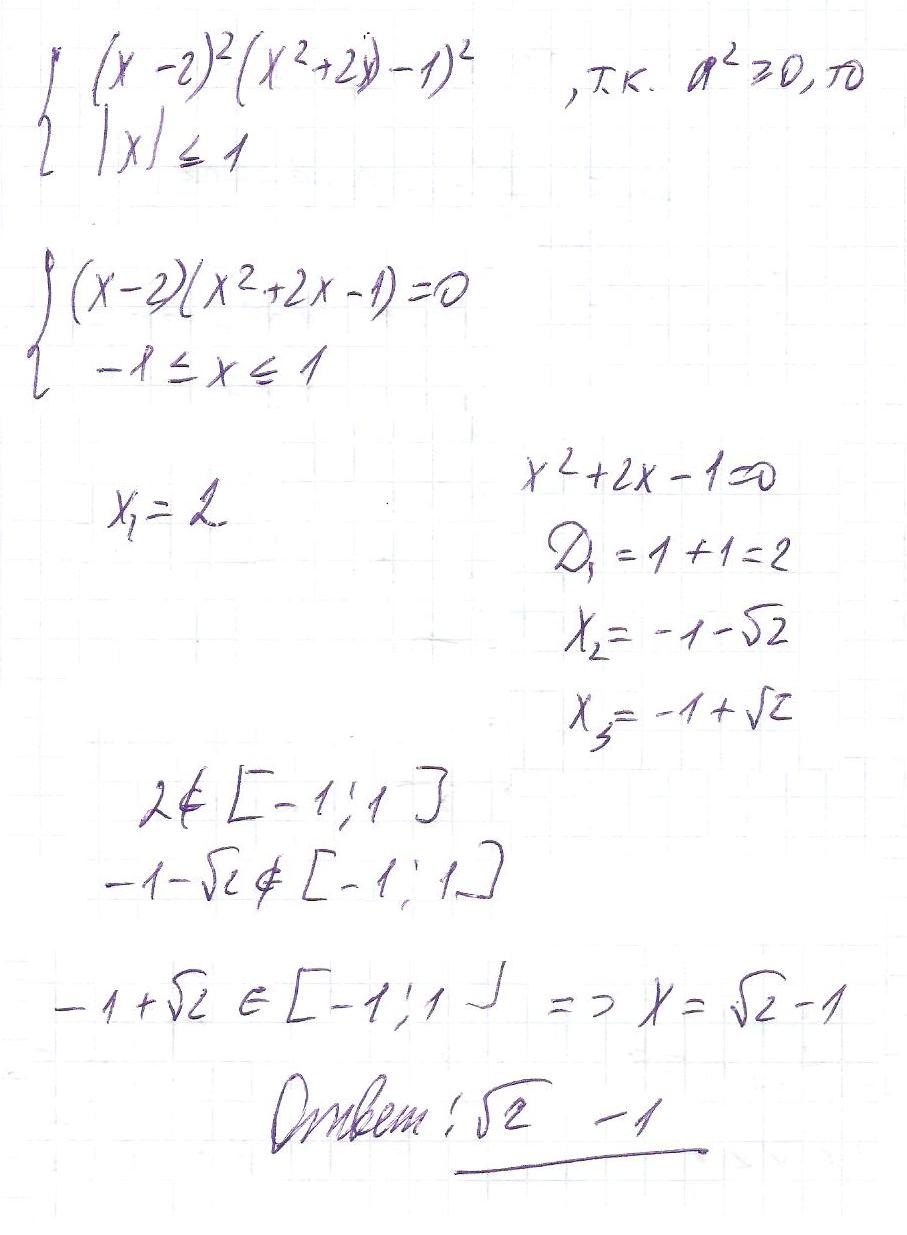 (x-2)²(x²+2x)-1)² , т.к. a²≥0, то
|x| ≤ 1
(x-2)(x²+2x-1)=0
-1 ≤ x ≤ 1
x²+2x-1=0
x₁=2
D₁=1+1=2
x₂=-1-√2
x₃=-1+√2
2∉[-1;1]
-1-√2∉[-1;1]
-1+√2 ∈ [-1;1] => x = √2-1
Ответ: √2 -1